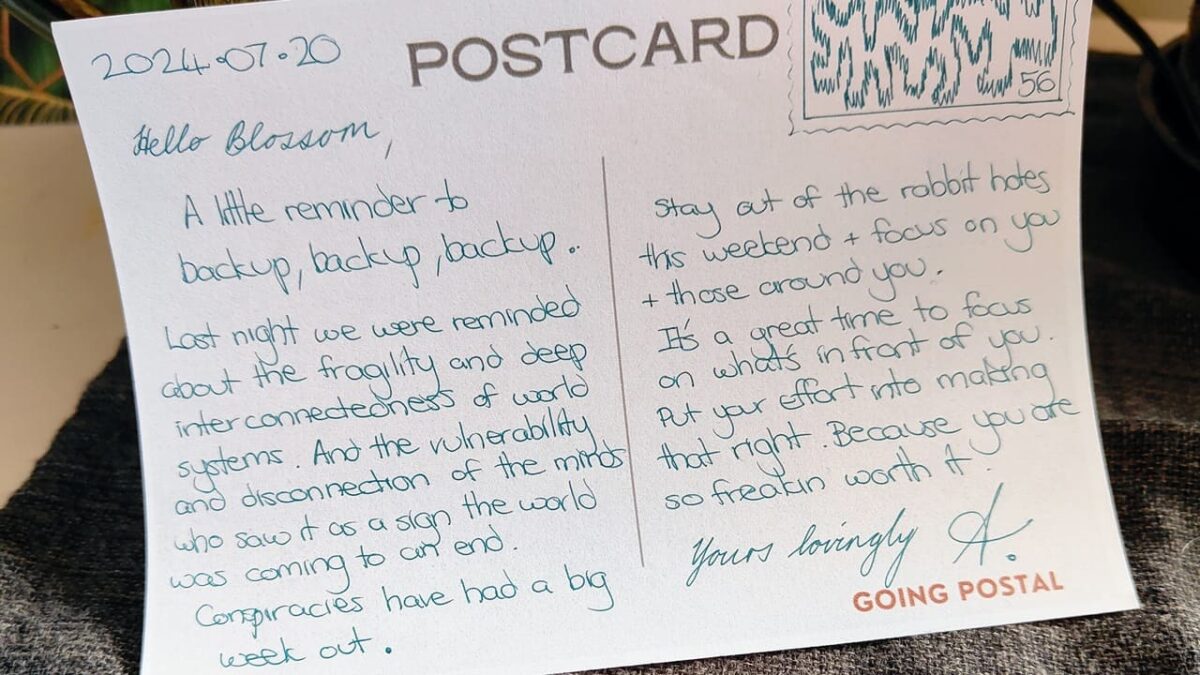 2024.07.20
POSTCARD
56
Hello Blossom,
A little reminder to
backup, backup, backup.
Last night we were reminded
about the fragility and deep
interconnectedness of world
systems. And the vulnerability
and disconnection of the minds
who saw it as a sign the world
was coming to an end.
Conspiracies have had a big
week out.
Stay out of the rabbit holes
this weekend + focus on you
+ those around you.
It's a great time to focus
on what's in front of you.
Put your effort into making
that right. Because you are
so freakin worth it.
Yours lovingly A.
GOING POSTAL